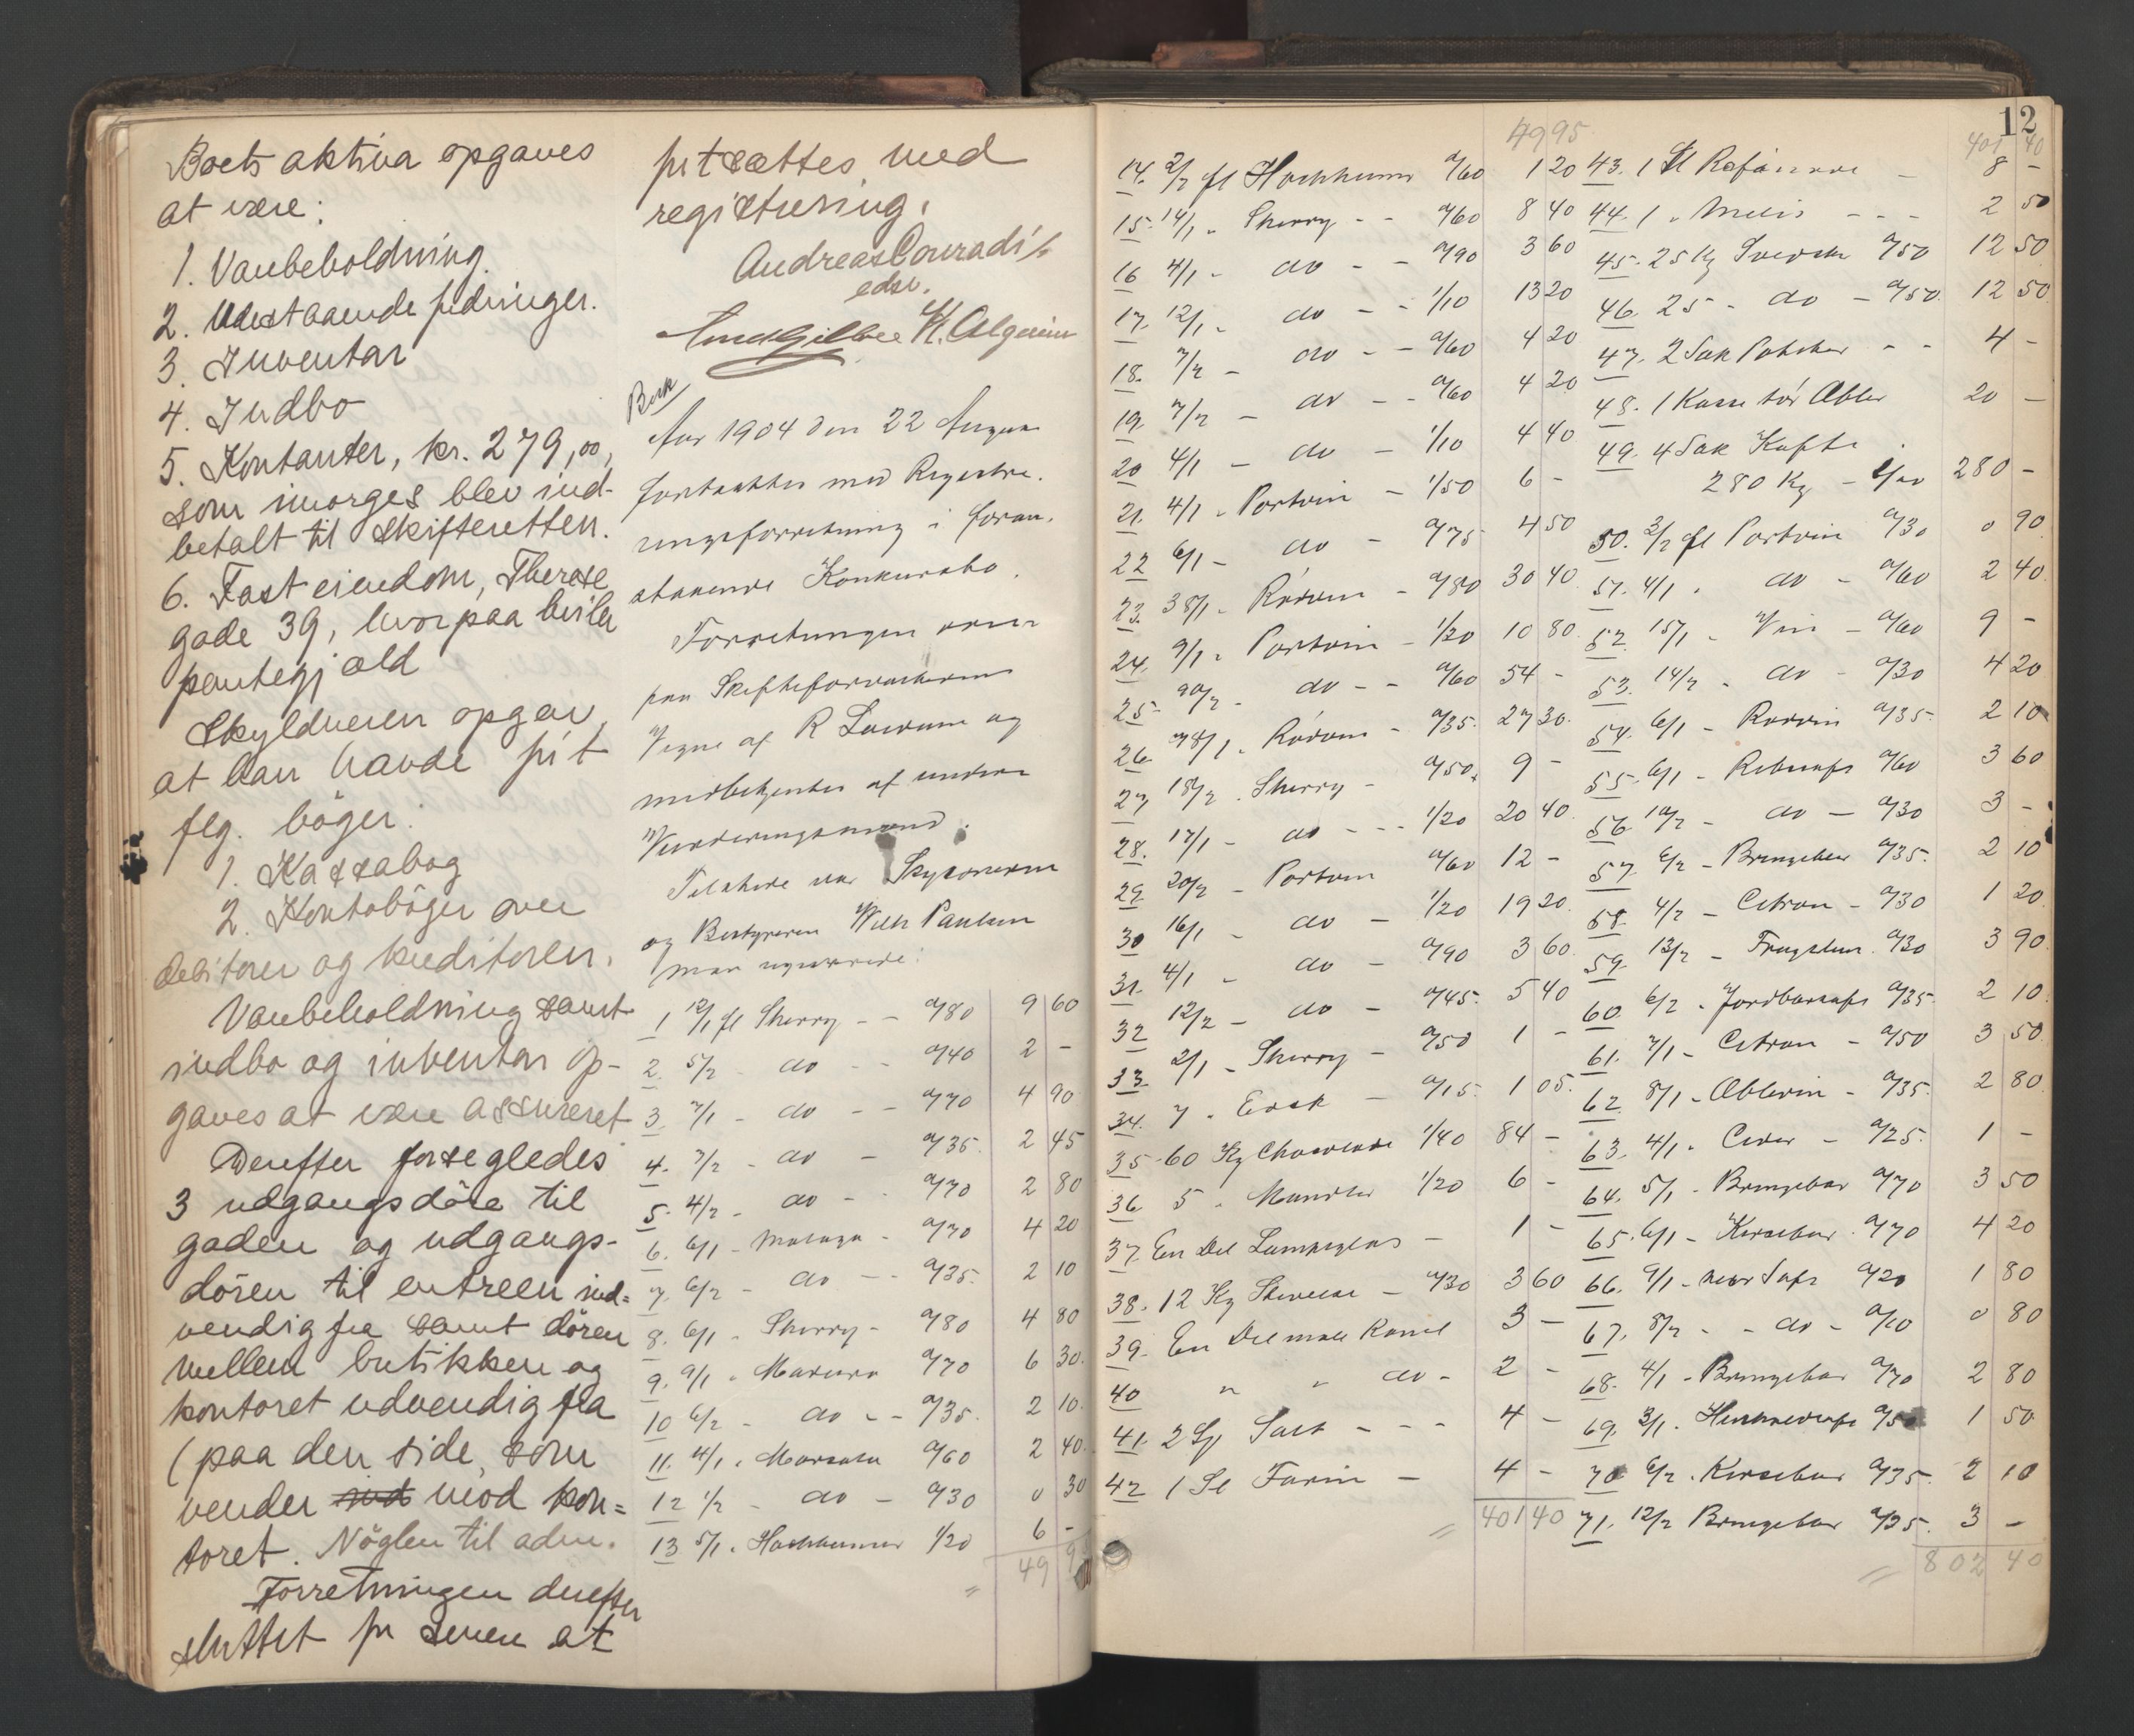 Boets aktiva opgaves
at være:
1. Varebeholdning.
2. Udestaaende fordringer.
3. Inventar
4. Indbo
5. Kontanter, kr. 279,00,
som imorges blev ind-
betalt til skifteretten.
6. Fast eiendom, Therese
gade 39, hvorpaa hviler
pantegjæld
Skyldneren opgav,
at han havde ført
flg. bøger:
1. Kassabog
2. Kontobøger over
debitorer og kreditorer.
Varebeholdning samt
indbo og inventar op-
gaves at være assureret
Derefter forsegledes
3 udgangsdøre til
gaden og udgangs-
døren til entreen ind=
vendig fra samt døren
mellem butikken og
kontoret udvendig fra
(paa den side, som
vender ind mod kon=
toret. Nøglen til adm.
Forretningen derefter
sluttet for senere at
fortsættes med
registrering.
Andreas Conradi
edsv.
Bok
Aar 1904 den 22 August
fortsattes med Registre-
ringsforretning i foran-
staaende Konkursbo.
Forretningen
paa Skifteforvalterens
Vegne af R og
medbetjenter af undere
Vurderingsmænd.
Tilstede var Skyldneren
og Bestyreren Wilh Paulsen
Man registrerede:
1 12/1 fl Sherry - - a/80 9 60
2. 5/2 - do - - a/40 2 -
3. 7/1 - do - - a/70 4 90
4. 7/2 - do - a/35. 2 45
5. 4/2 - do - - a/70 2 80
6. 6/1 - Malaga - a/70 4 20
7. 6/2 - do - - a/35. 2 10
8. 6/1 - Sherry - a/80 4 80
9. 9/1 - Madeira a/70 6 30.
10 6/2 - do - - a/35. 2 10.
11. 4/1 - Marsala a/60 2 40.
12 1/2 - do - a/30 0 30
13 5/1 - Hochheimer 1/20 6 -
49 95
12
49 95
14. 2/2 fl Hochheimer a/60 1 20
15. 14/1 - Sherry - - a/60 8 40
16 4/1 - do - - a/90 3 60
17. 12/1 - do - - 1/10 13 20
18. 7/2 - do - - a/60 4 20
19. 7/2 - do - - a/60 4 20
20 4/1 - do - 1/10 4 40
21. 4/1 - Portvin - 1/50 6 -
22 6/1 - do - a/75 4 50
23. 38/1 - Rødvin - a/80 30 40
24. 9/1 - Portvin - 1/20 10 80
25. 90/2 - do - - a/60 54 -
26. 78/1 - Rødvin - a/35. 27 30.
27 18/2 - Sherry - a/50. 9 -
28. 17/1 - do - - - 1/20 20 40.
29 20/2 - Portvin a/60 12 -
30 16/1 - do - 1/20 19 20.
31. 4/1 - do - a/90 3 60.
32 12/2 - do - a/45. 5 40
33 2/1 - Sherry - a/50 1 -
34. 7 - Edik - a/15. 1 05.
35 60 Kg Chocolade 1/40 84 -
36 5 - Mandler 1/20 6 -
37. En Del Lampeglas - 1 -
38. 12 Kg Stivelse - a/30 3 60
39. En Del malt Kanel 3 -
40 " " do - 2 -
41. 2 Salt - - - 4 -
42 1 Farin - 4 -
401 40
401 40
43. 1 Raffinade - 8 -
44. 1 - Melis - - - 2 50
45. 25 Kg Svedsker a/50 12 50
46. 25 - do - a/50. 12 50
47. 2 Sæk Poteter - - 4 -
48. 1 Kasse tør Æbler 20 -
49. 4 Sæk Kaffe
280 Kg - 1/00 280 -
50. 3/2 fl Portvin a/30 0 90
51. 4/1 - do - a/60 2 40.
52. 15/1 - Vin - a/60 9 -
53. 14/2 - do - a/30 4 20
54. 6/1 - Rødvin a/35. 2 10
55. 6/1 - Ribssaft a/60 3 60
56 10/2 - do - a/30 3 -
57. 6/2 - Bringebær a/35. 2 10
58. 4/2 - Citron - a/30 1 20
59. 13/2 - Frugtvin. a/30 3 90
60. 6/2 - Jordbærsaft a/35. 2 10
61. 7/1 - Citron - a/50 3 50
62 8/1 - Æblevin - a/35. 2 80
63. 4/1 - Cider - a/25. 1 -
64. 5/1 - Bringebær a/70 3 50
65. 6/1 - Kirsebær a/70 4 20
66. 9/1 - Saft a/20 1 80
67. 8/2 - - do - a/10 0 80
68. 4/1 - Bringebær a/70 2 80
69. 3/1 - a/50 1 50
70 6/2 - Kirsebær a/35. 2 10
71. 12/2 Bringebær a/25. 3 -
802 40